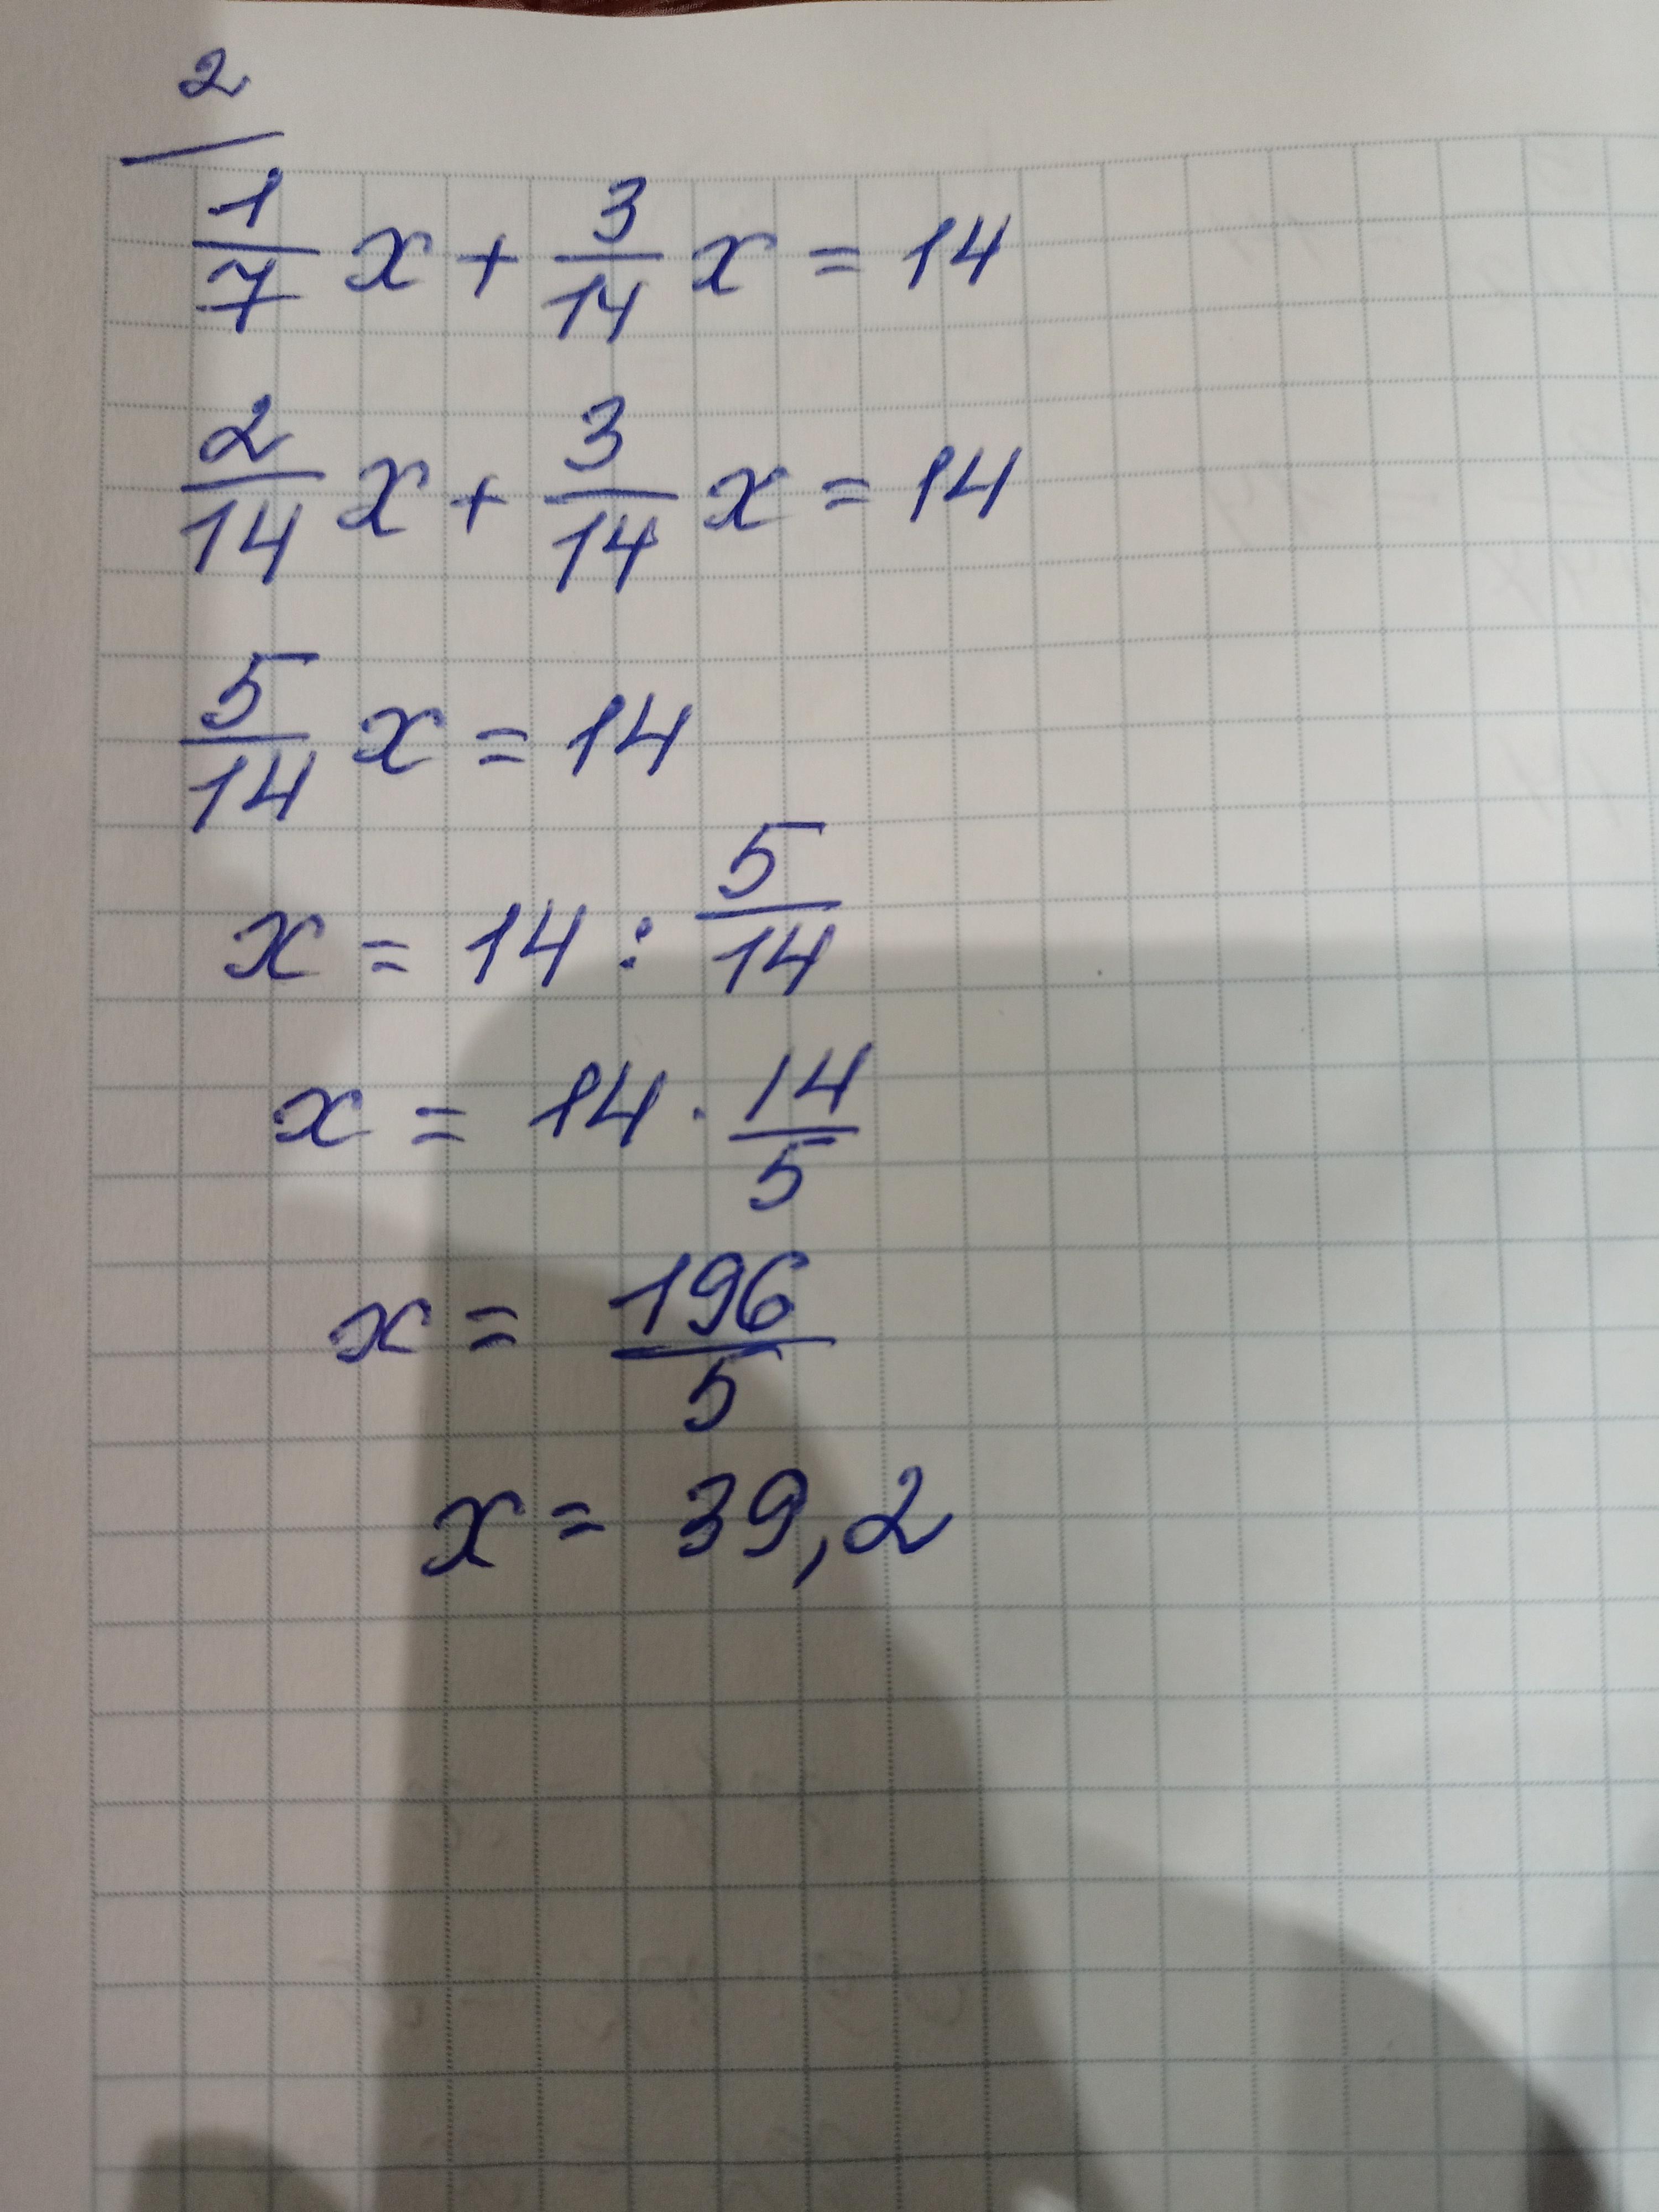 2
1/7 x + 3/14 x = 14
2/14 x + 3/14 x = 14
5/14 x = 14
x = 14 : 5/14
x = 14 · 14/5
x = 196/5
x = 39,2